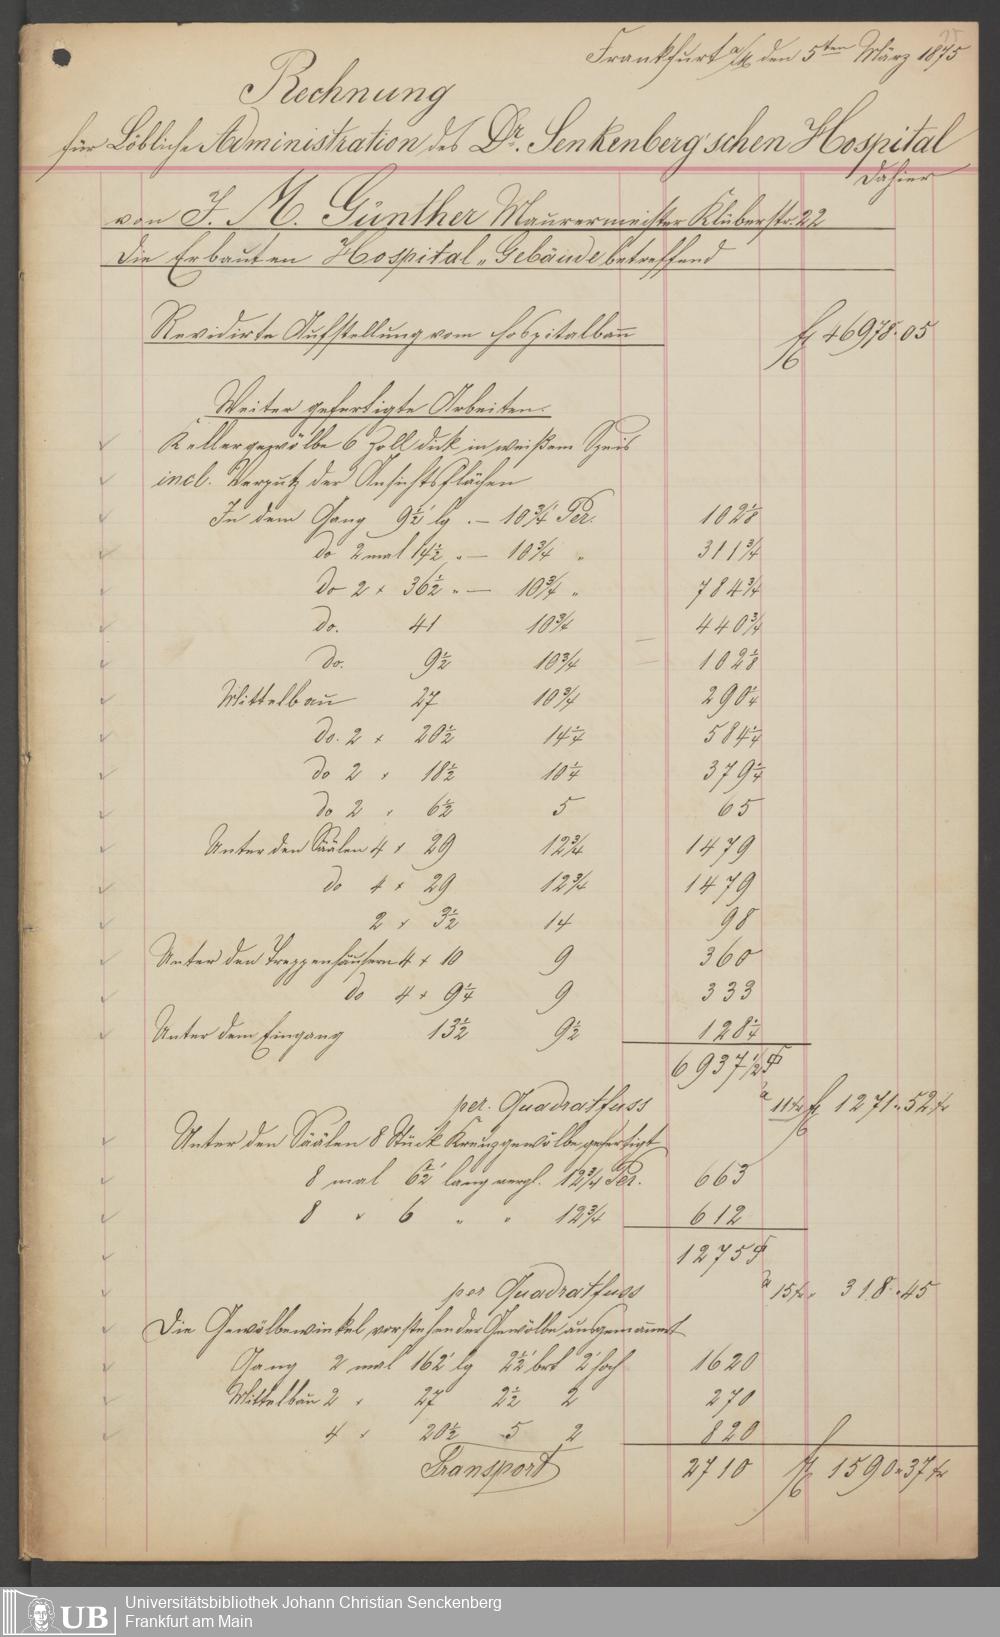 Frankfurt a/M den 5ten März 1875
Rechnung
für Löbliche Administration des Dr. Senkenberg'schen Hospital
dahier
von J. M. Günther Maurermeister Klüberstr. 22
Die Erbauten Hospital-Gebäude betreffend
Revidirte Aufstellung vom Hospitalbau fl 46978.05
Weiter gefertigte Arbeiten.
Kellergewölbe 6 Zoll dick in weißem Speis
incl. Verputz der Ansichtsflächen
In dem Gang 9½' lg. — 10¾' Per. 102⅛
do 2 mal 14½ " — 10¾ " 311¾
do 2 × 36½ " — 10¾ " 784¾
do. 41 10¾ 440¾
do. 9½ 10¾ 102⅛
Mittelbau 27 10¾ 290¼
do. 2 × 20½ 14¼ 584¼
do 2 × 18½ 10¼ 379¼
do 2 × 6½ 5 65
Unter den Säälen 4 × 29 12¾ 1479
do 4 × 29 12¾ 1479
2 × 3½ 14 98
Unter den Treppenhäusern 4 × 10 9 360
do 4 × 9¼ 9 333
Unter dem Eingang 13½ 9½ 128¼
6937½
per. Quadratfuss à 11 kr fl 1271.52 kr
Unter den Säälen 8 Stück Kreuzgewölbe gefertigt
8 mal 6½' lang vergl. 12¾ Per. 663
8 " 6 " " 12¾ 612
1275
per Quadratfuss à 15 kr. 318.45
Die Gewölbewinkel vorstehender Gewölbe ausgemauert
Gang 2 mal 162' lg 2½' brt 2' hoch 1620
Mittelbau 2 " 27 2½ 2 270
4 " 20½ 5 2 820
Transport 2710 fl 1590.37 kr
UB
Universitätsbibliothek Johann Christian Senckenberg
Frankfurt am Main